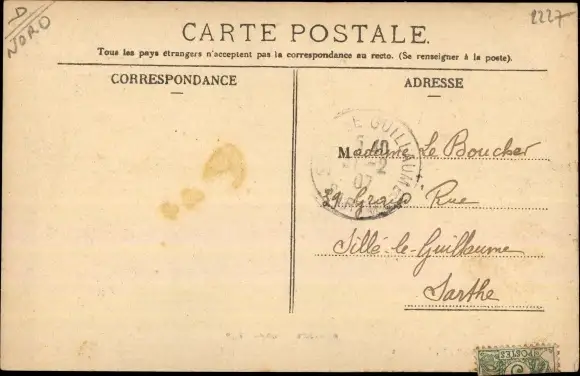 D
NORD
2227
CARTE POSTALE.
Tous les pays étrangers n'acceptent pas la correspondance au recto. (Se renseigner à la poste).
CORRESPONDANCE
ADRESSE
Madame Le Boucher
Rue
Sillé-le-Guillaume
Sarthe
GUILLAUME
07
POSTES